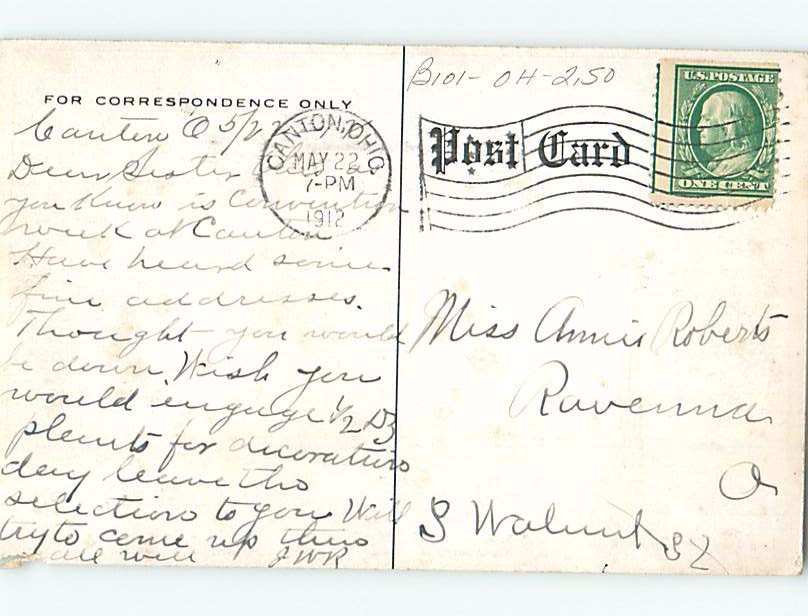 FOR CORRESPONDENCE ONLY
Canton O 5/22
Dear Sister
you know is Convention
week at Canton
Have heard some
fine addresses.
Thought you would
be down. Wish you
would engage 1/2 Dz
plants for decoration
day leave the
selection to you Will
try to come up then
all well JWR
CANTON, OHIO.
MAY 22
7-PM
1912
B101-OH-2.50
Post Card
U.S. POSTAGE
ONE CENT
Miss Annie Roberts
Ravenna
O
S Walnut St